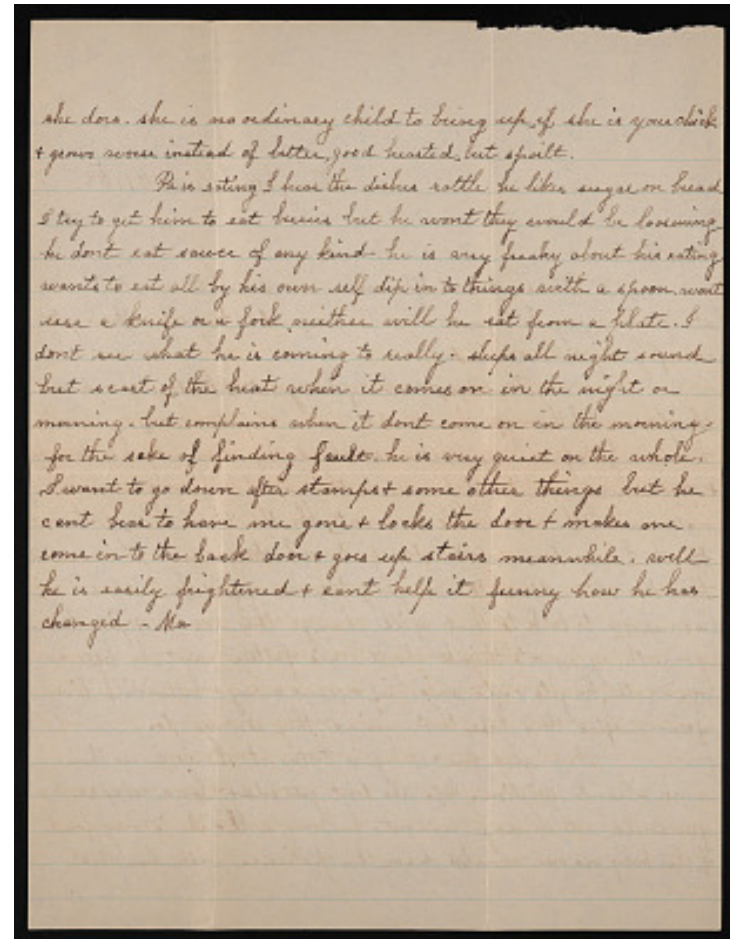 she does. she is no ordinary child to bring up, if she is your chick
+ grows worse instead of better, good hearted, but spoilt.
Pa is eating I hear the dishes rattle he likes sugar on bread
I try to get him to eat berries but he wont they would be loosening
he dont eat sauce of any kind. he is very freaky about his eating
wants to eat all by his own self dip in to things with a spoon. wont
use a knife or a fork neither will he eat from a plate. I
dont see what he is coming to really. sleeps all night sound
but scart of the heat when it comes on in the night or
morning. but complains when it dont come on in the morning.
for the sake of finding fault. he is very quiet on the whole.
I want to go down after stamps + some other things but he
cant bear to have me gone + locks the door + makes me
come in to the back door + goes up stairs meanwhile. well
he is easily frightened + cant help it funny how he has
changed - Ma